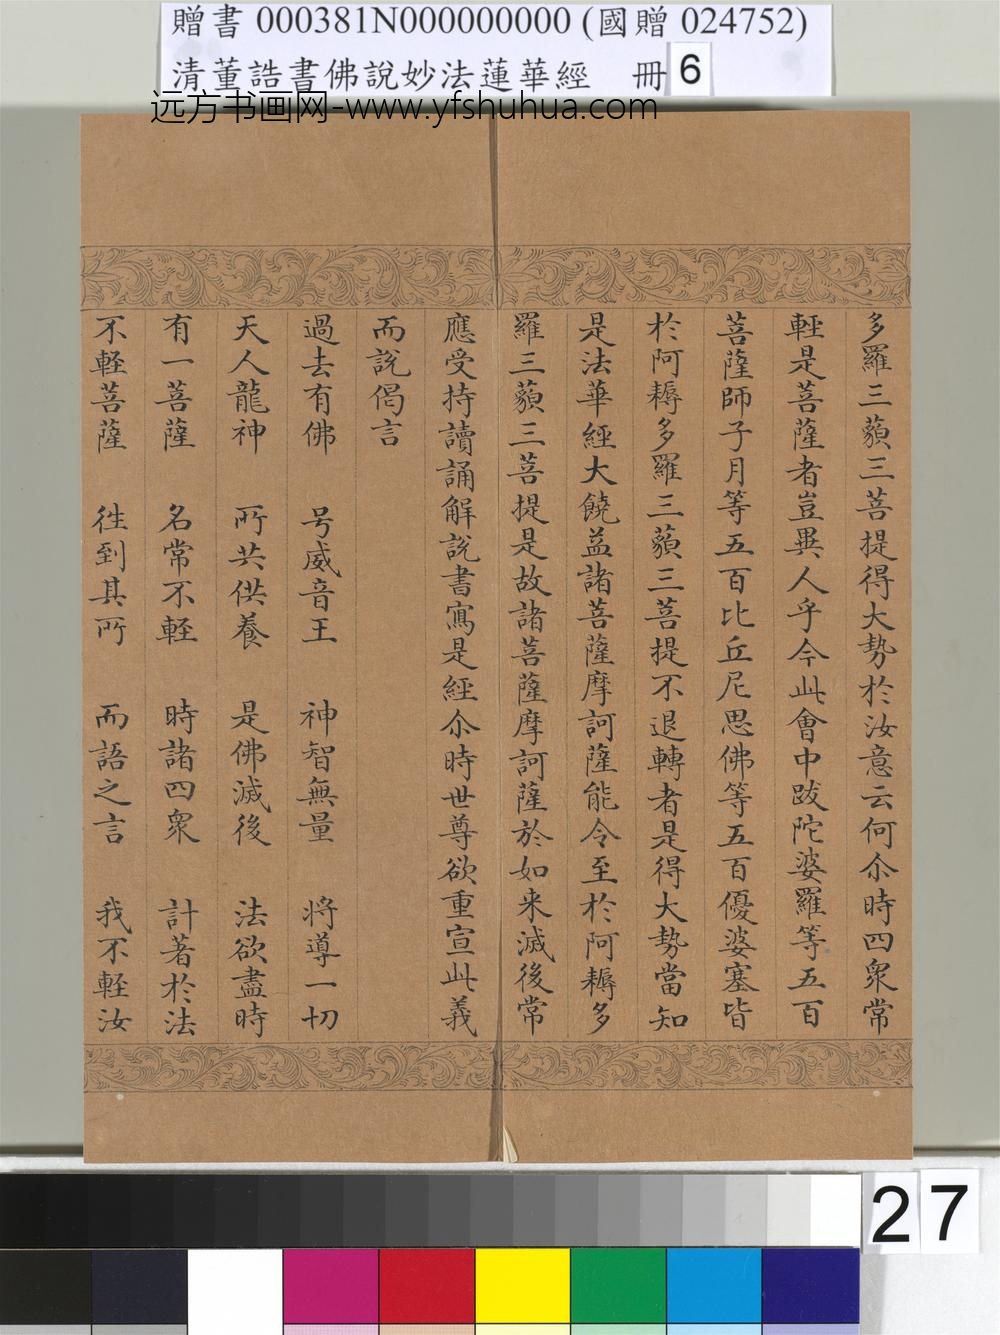 贈書 000381N000000000 (國贈 024752)
清董誥書佛說妙法蓮華經 冊 6
远方书画网-www.yfshuhua.com
多羅三藐三菩提得大勢於汝意云何尒時四衆常
輕是菩薩者豈異人乎今此會中跋陀婆羅等五百
菩薩師子月等五百比丘尼思佛等五百優婆塞皆
於阿耨多羅三藐三菩提不退轉者是得大勢當知
是法華經大饒益諸菩薩摩訶薩能令至於阿耨多
羅三藐三菩提是故諸菩薩摩訶薩於如来滅後常
應受持讀誦解說書寫是經尒時世尊欲重宣此義
而說偈言
過去有佛 号威音王 神智無量 將導一切
天人龍神 所共供養 是佛滅後 法欲盡時
有一菩薩 名常不輕 時諸四衆 計著於法
不輕菩薩 徃到其所 而語之言 我不輕汝
27